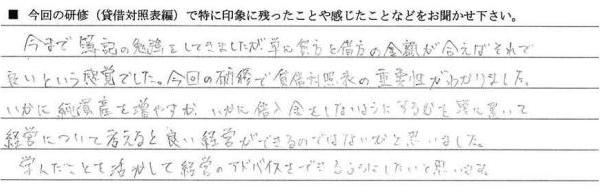 ■ 今回の研修（貸借対照表編）で特に印象に残ったことや感じたことなどをお聞かせ下さい。
今まで簿記の勉強をしてきましたが単に貸方と借方の金額が合えばそれで
良いという感覚でした。今回の研修で貸借対照表の重要性がわかりました。
いかに総資産を増やすか、いかに借入金をしないようにするかを常に置いて
経営について考えると良い経営ができるのではないかと思いました。
学んだことを活かして経営のアドバイスをできるようにしたいと思います。